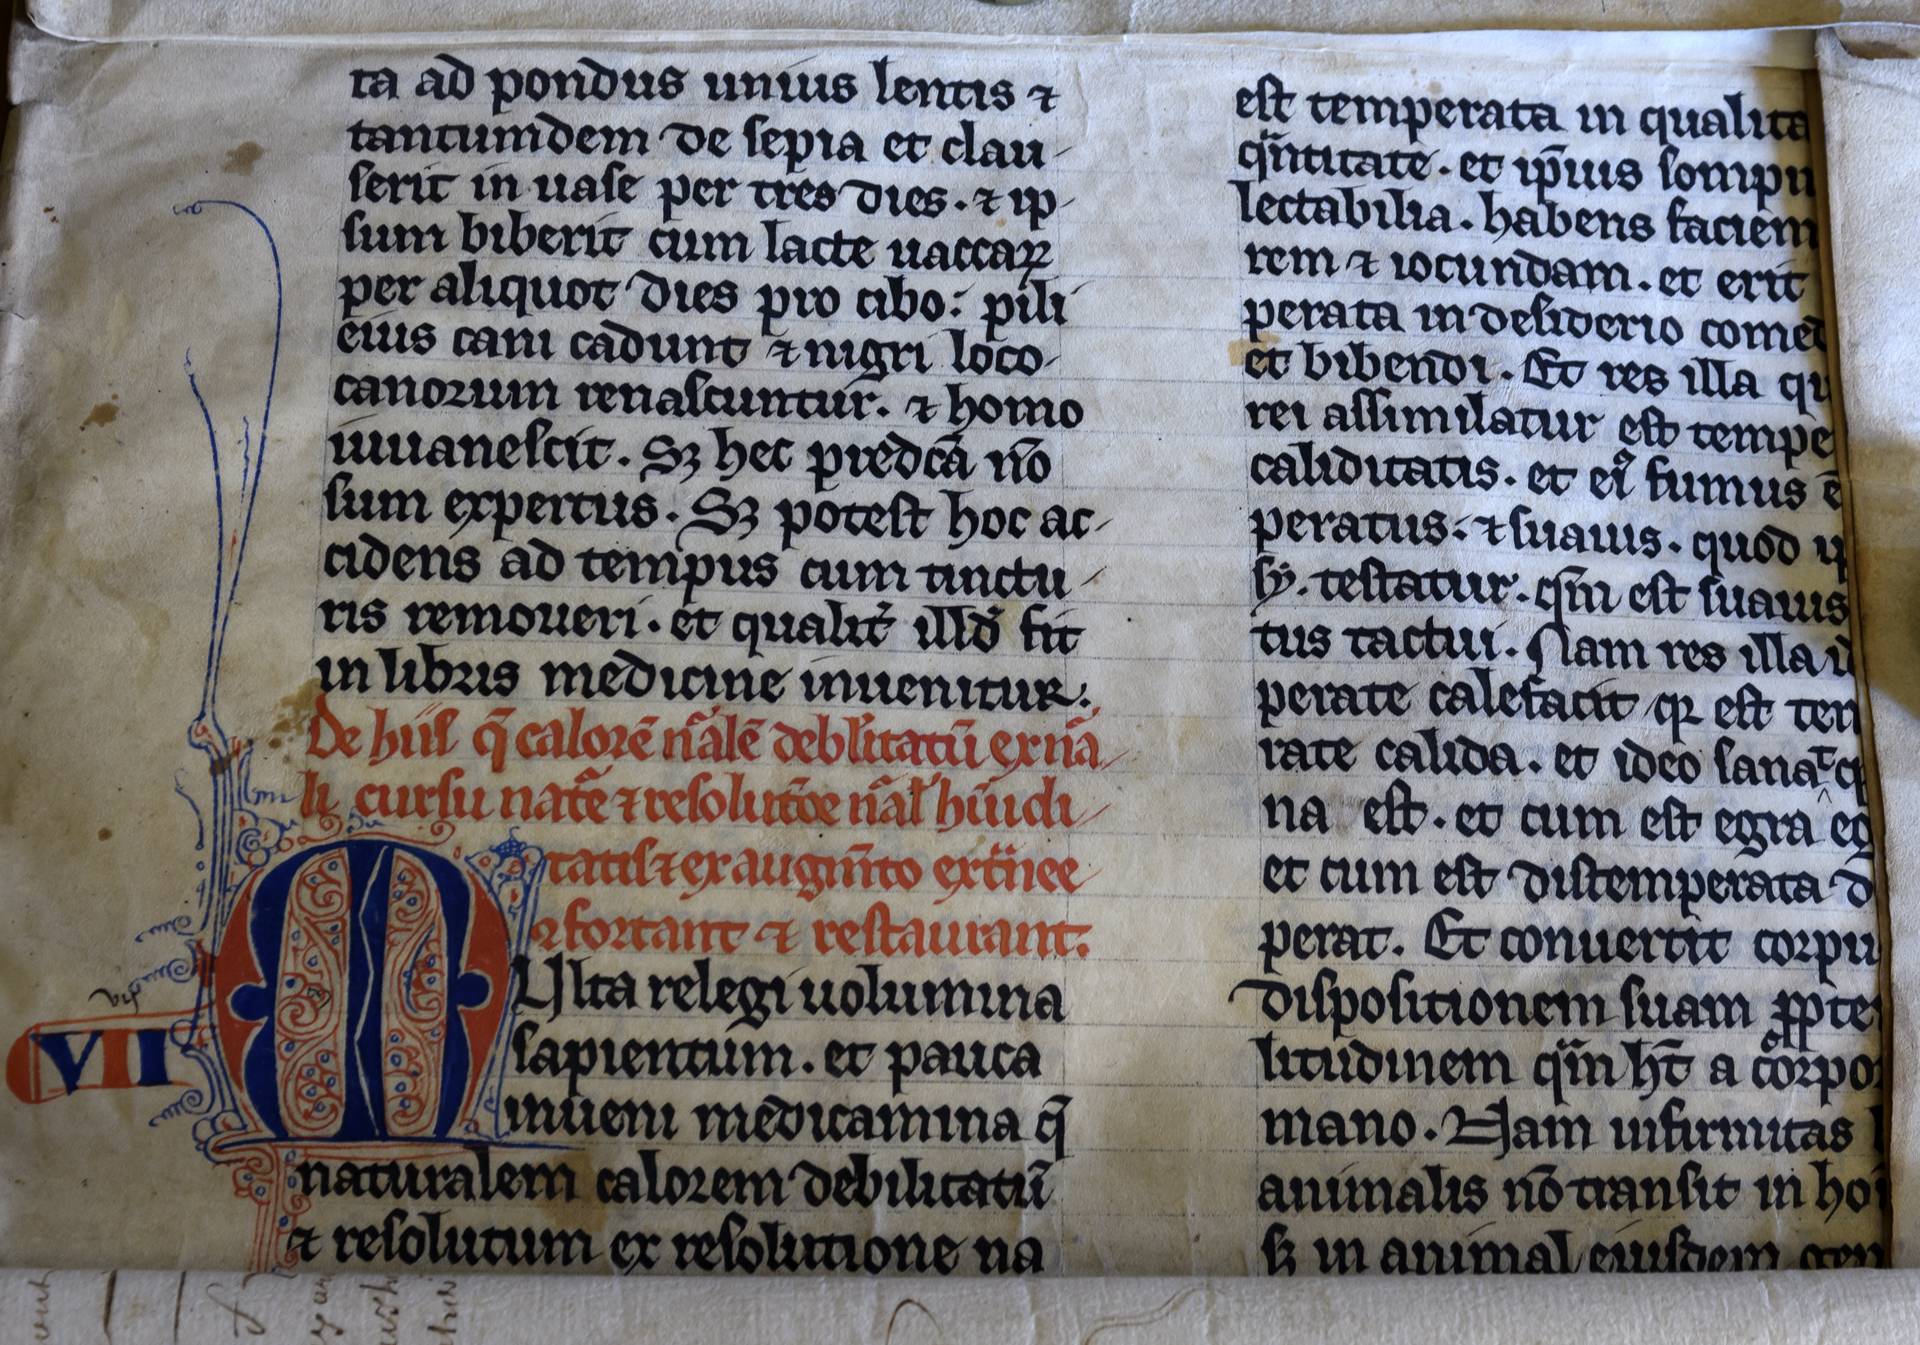 ta ad pondus unius lentis ⁊
tantumdem de sepia et clau-
serit in uase per tres dies. ⁊ ip-
sum biberit cum lacte uaccaꝝ
per aliquot dies pro cibo: pili
eius cani cadunt ⁊ nigri loco-
canorum renascuntur. ⁊ homo
iuuanescit. Sꝫ hec predc̄a nō
sum expertus. Sꝫ potest hoc ac-
cidens ad tempus cum tinctu-
ris remoueri. et qualit͛ illđ fit
in libris medicine inuenitur.
De hiis q̄ calorē nãlē debilitatū ex nã-
li cursu natẽ ⁊ resolutōe nãl hūidi-
tatis ⁊ ex augm̄to extͥnee
ꝯfortant ⁊ restaurant.
VII
MUlta relegi uolumina
sapientum. et pauca
inueni medicamina q̄
naturalem calorem debilitatū
⁊ resolutum ex resolutione na
est temperata in qualita
qͣntitate. et ip̄ius sompn
lectabilia. habens faciem
rem ⁊ iocundam. et erit
perata in desiderio comed
et bibendi. Et res illa qu
rei assimilatur est tempe
caliditatis. et eiꝰ fumus ē
peratus. ⁊ suauis. quod
testatur. qm̄ est suauis
tus tactui. Nam res illa
perate calefacit qꝛ est tem
rate calida. et ideo sanat
na est. et cum est egra eg
et cum est distemperata d
perat. Et conuertit corpu
dispositionem suam ꝓpte
litudinem qͣm hꝫ a corpo
mano. Nam infirmitas
animalis nō transit in hoī
sꝫ in animal eiusdem gen